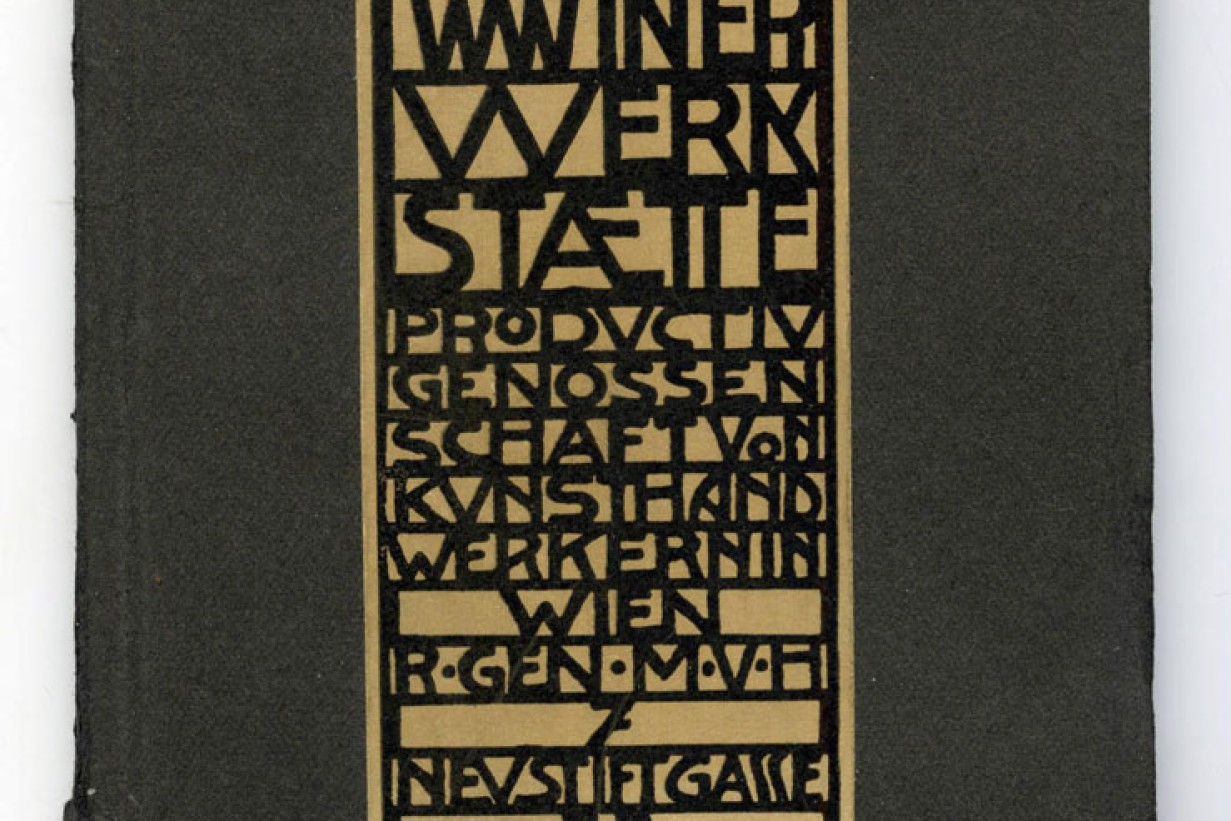 WWINER
WERK
STÆTTE
PRODVCTIV
GENOSSEN
SCHAFT VON
KVNSTHAND
WERKERN IN
WIEN
R·GEN·M·V·H
7
NEVSTIFTGASSE